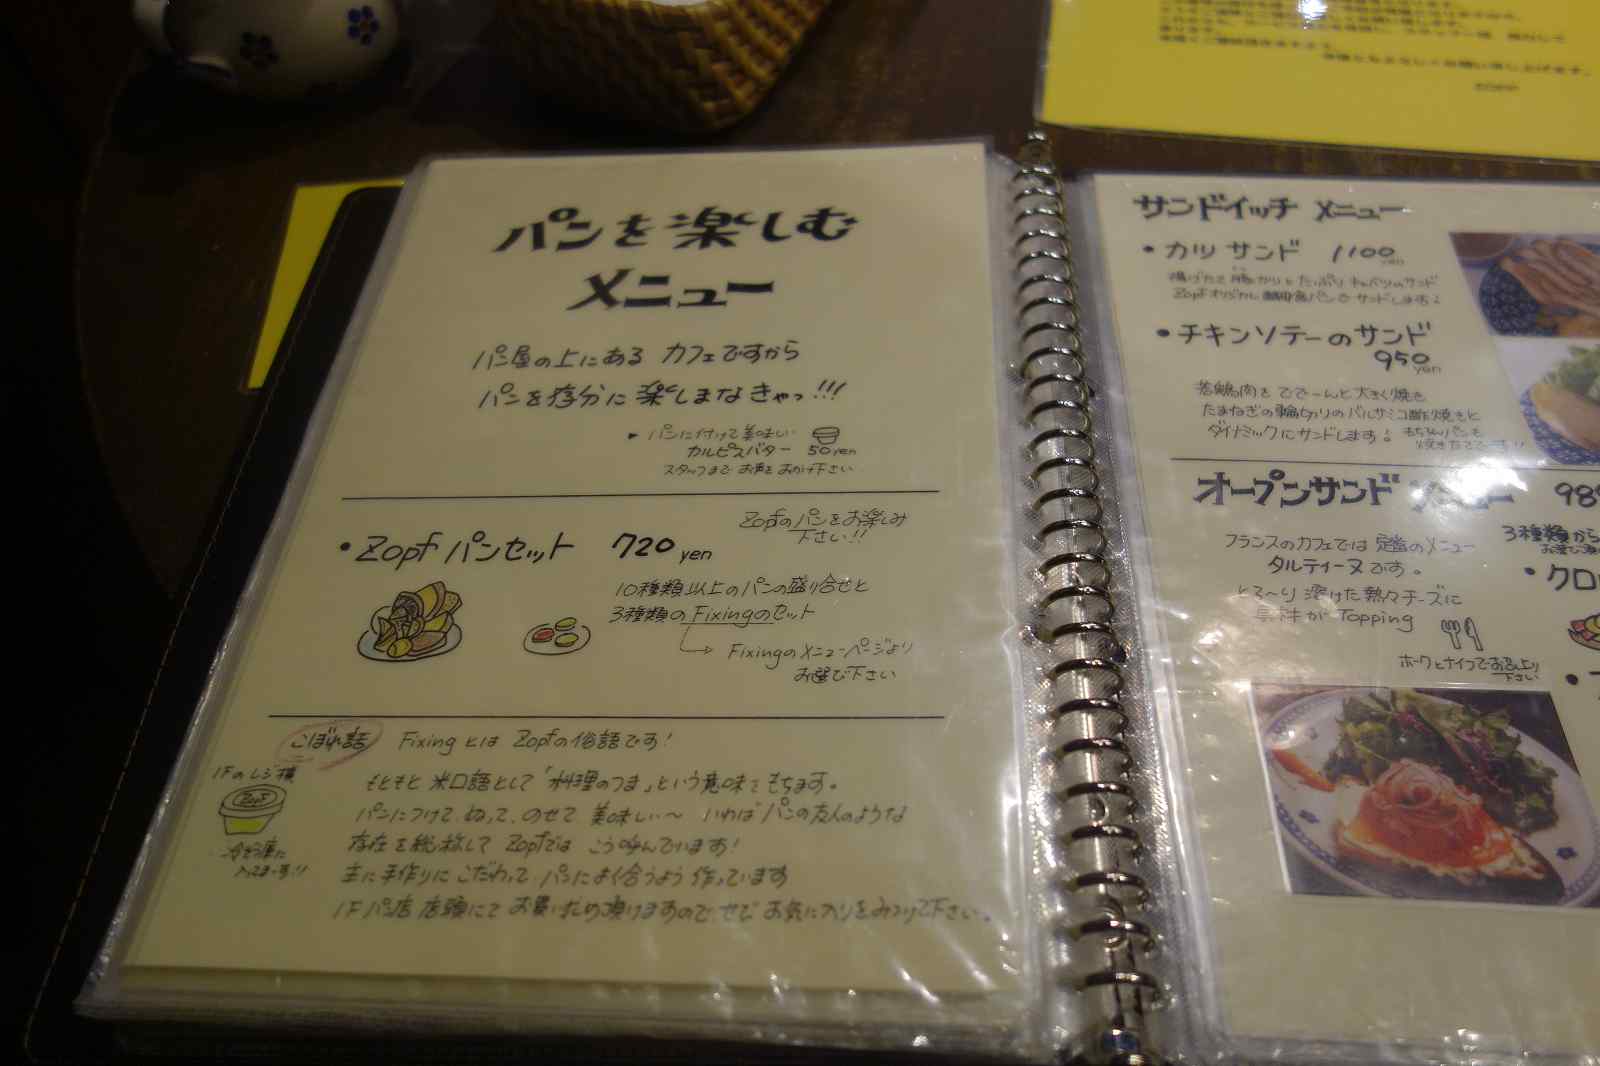 パンを楽しむ
メニュー
パン屋の上にある カフェですから
パンを存分に楽しまなきゃっ!!!
▶ パンに付けて美味しい
カルピスバター 50yen
スタッフまで お声をおかけ下さい
• Zopf パンセット 720 yen
Zopfのパンをお楽しみ
下さい!!
10種類以上のパンの盛り合せと
3種類のFixingのセット
Fixingのメニューページより
お選び下さい
こぼれ話 Fixing とは Zopfの俗語です!
もともと 米口語として「料理のつま」という意味をもちます。
パンにつけて、ぬって、のせて 美味しい〜 いわば パンの友人のような
存在を総称して Zopfでは こう呼んでいます!
主に手作りに こだわって パンによく合うよう 作っています
1F パン店 店頭にて お買い求め頂けますので ぜひ お気に入りをみつけて下さい。
1Fのレジ横
Zopf
冷蔵庫に
入ってまーす!!
サンドイッチ メニュー
• カツ サンド 1100 yen
揚げたて豚カツと たっぷり キャベツのサンド
Zopfオリジナル 食パンで サンドします!
• チキンソテーのサンド
950 yen
若鶏肉を ででーんと大きく焼き
たまねぎの輪切りのバルサミコ酢焼きと
ダイナミックにサンドします! もちろんパンも
焼きたてでーす!!
オープンサンド メニュー 98
フランスのカフェでは 定番のメニュー
タルティーヌです。
とろ〜り 溶けた 熱々チーズに
具材が Topping
ホークとナイフでお召し上り
下さい
3種類から
• クロ